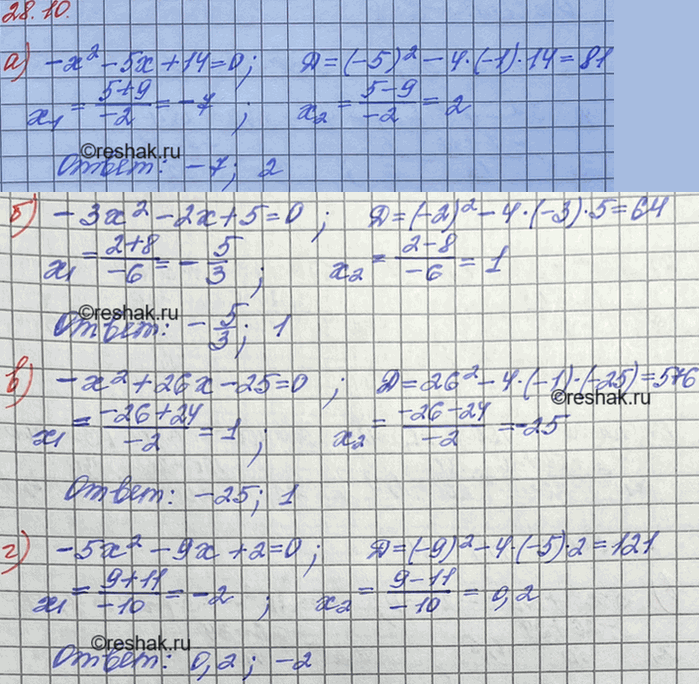 28.10.
а) -x² - 5x + 14 = 0; Д = (-5)² - 4·(-1)·14 = 81
x₁ = (5+9)/(-2) = -7; x₂ = (5-9)/(-2) = 2
©reshak.ru
Ответ: -7; 2
б) -3x² - 2x + 5 = 0; Д = (-2)² - 4·(-3)·5 = 64
x₁ = (2+8)/(-6) = -5/3; x₂ = (2-8)/(-6) = 1
©reshak.ru
Ответ: -5/3; 1
в) -x² + 26x - 25 = 0; Д = 26² - 4·(-1)·(-25) = 576
©reshak.ru
x₁ = (-26+24)/(-2) = 1; x₂ = (-26-24)/(-2) = -25
Ответ: -25; 1
г) -5x² - 9x + 2 = 0; Д = (-9)² - 4·(-5)·2 = 121
x₁ = (9+11)/(-10) = -2; x₂ = (9-11)/(-10) = 0,2
©reshak.ru
Ответ: 0,2; -2